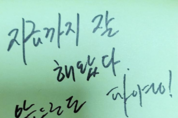 지금까지 잘
해왔다.
앞으로도 파이팅!